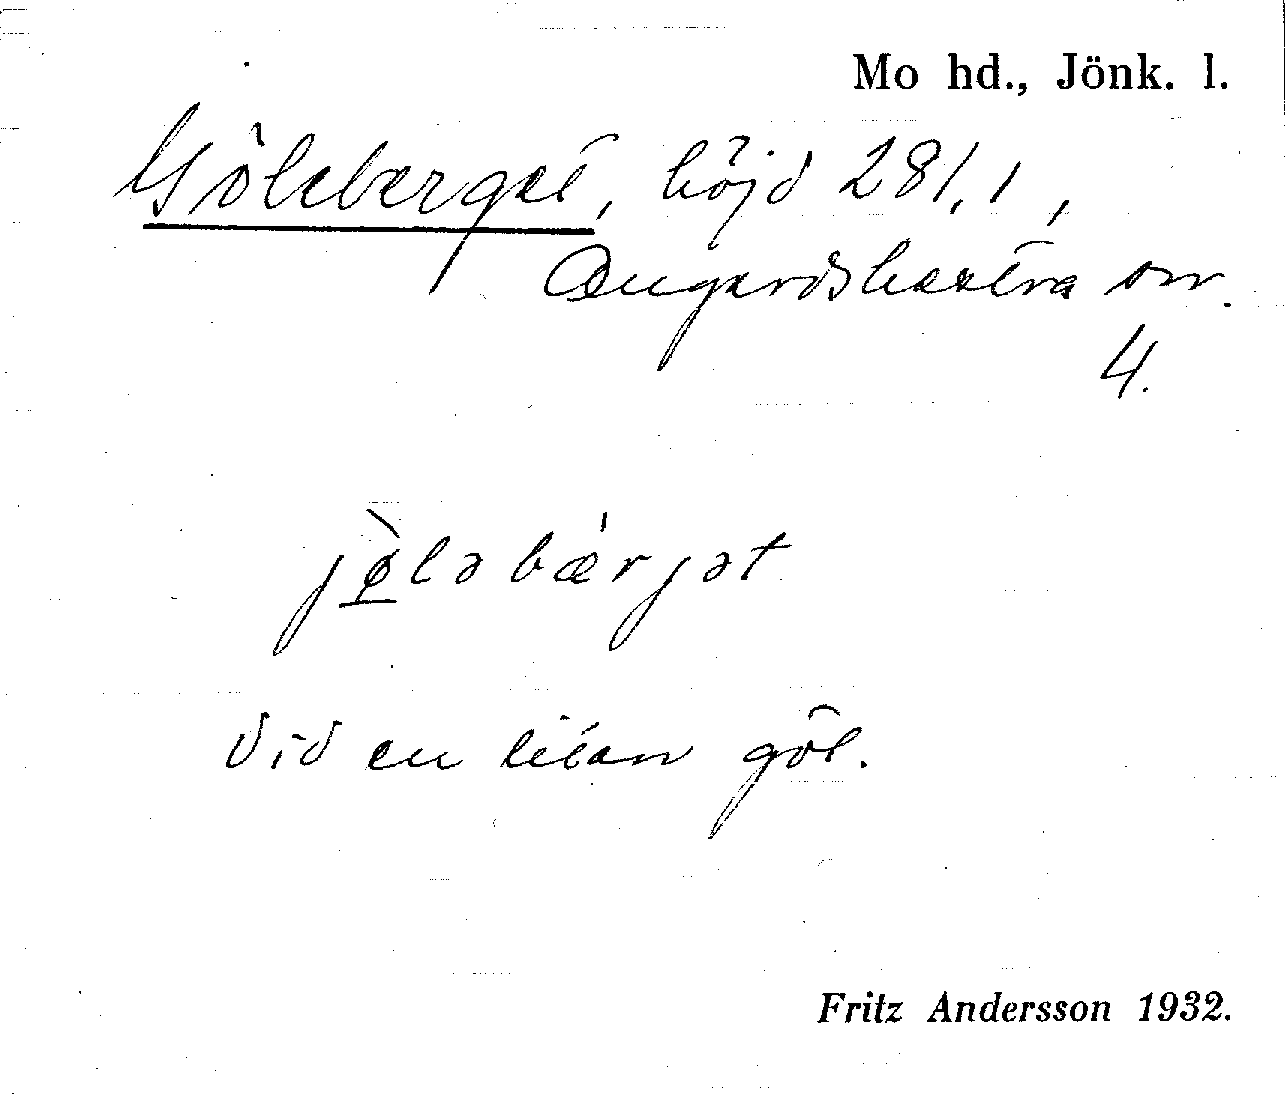 Mo hd., Jönk. l.
Göleberget, höjd 281,1,
Öngardsbästra sn.
4.
jø̀ləbær'jət
Vid en liten göl.
Fritz Andersson 1932.